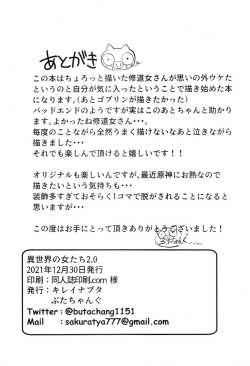 あとがき
この本はちょろっと描いた修道女さんが思いの外ウケた
というのと自分が気に入ったということで描き始めた本
になります。(あとゴブリンが描きたかった)
バッドエンドのようですが実はこのあとちゃんと助かり
ます。よかったね修道女さん…。
毎度のことながら全然うまく描けないなあと泣きながら
描きました…
それでも楽しんで頂けると嬉しいです!!
オリジナルも楽しいんですが、最近原神にお熱なので
描きたいという気持ちも…
装飾多すぎておそらく1コマで脱がされることになると
思いますが…
この度はお手にとって頂きありがとうございました!
異世界の女たち2.0
2021年12月30日発行
印刷:同人誌印刷.com 様
発行:キレイナブタ
ぶたちゃんぐ
Twitter:@butachang1151
Mail :sakuratya777@gmail.com